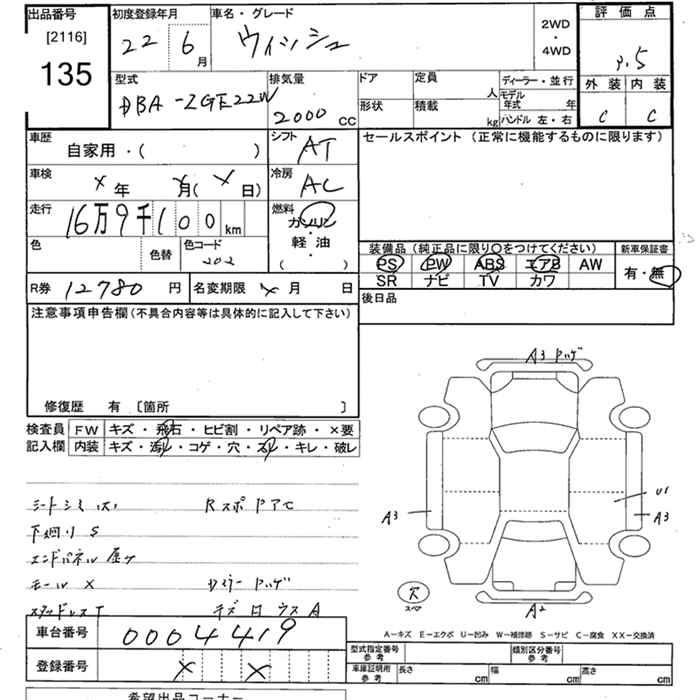 出品番号
[2116]
135
初度登録年月
22 6月
車名・グレード
ウィッシュ
2WD
・
4WD
評価点
3.5
外装 内装
C C
型式
DBA-ZGE22W
排気量
2000 CC
ドア
形状
定員 人
積載 kg
ディーラー・並行
モデル年式 年
ハンドル 左・右
車歴
自家用・( )
シフト
AT
セールスポイント (正常に機能するものに限ります)
車検
X年 X月(X日)
冷房
AC
走行
16万9千100km
燃料
ガソリン
・
軽・油
( )
色
色替
色コード
202
装備品(純正品に限り○をつけてください)
PS PW ABS エアB AW
SR ナビ TV カワ
新車保証書
有・無
R券 12780円
名変期限 X月 日
後日品
注意事項申告欄(不具合内容等は具体的に記入して下さい)
修復歴 有 〔箇所 〕
検査員記入欄
FW キズ・飛石・ヒビ割・リペア跡・×要
内装 キズ・汚れ・コゲ・穴・スレ・キレ・破レ
下廻り S
エンドパネル
モール X
スタッドレス
A3 ハゲ
A3
U1
A3
穴
スペア
A2
A-キズ E-エクボ U-凹み W-補修跡 S-サビ C-腐食 XX-交換済
車台番号
0004419
登録番号
X X
型式指定番号
参考
類別区分番号
参考
車庫証明用
参考
長さ cm
幅 cm
高さ cm
希望出品コーナー